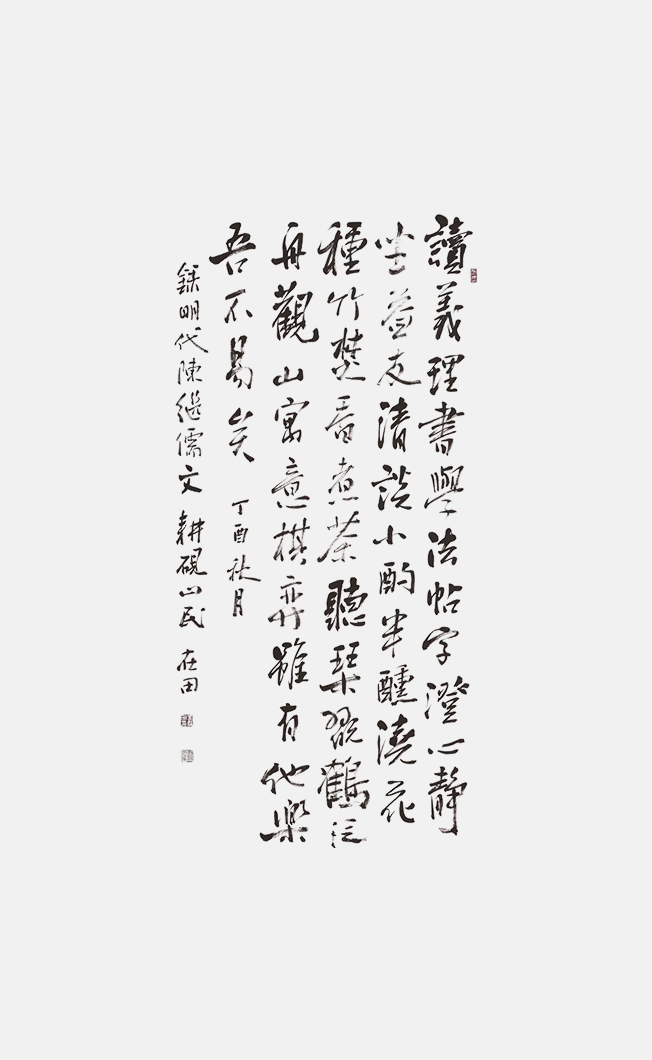 讀義理書學法帖字澄心靜
坐益友清談小酌半醺澆花
種竹焚香煮茶聽琹翫鶴泛
舟觀山寓意棋弈雖有他樂
吾不易矣 丁酉秋月
錄明代陳繼儒文 耕硯山民 在田